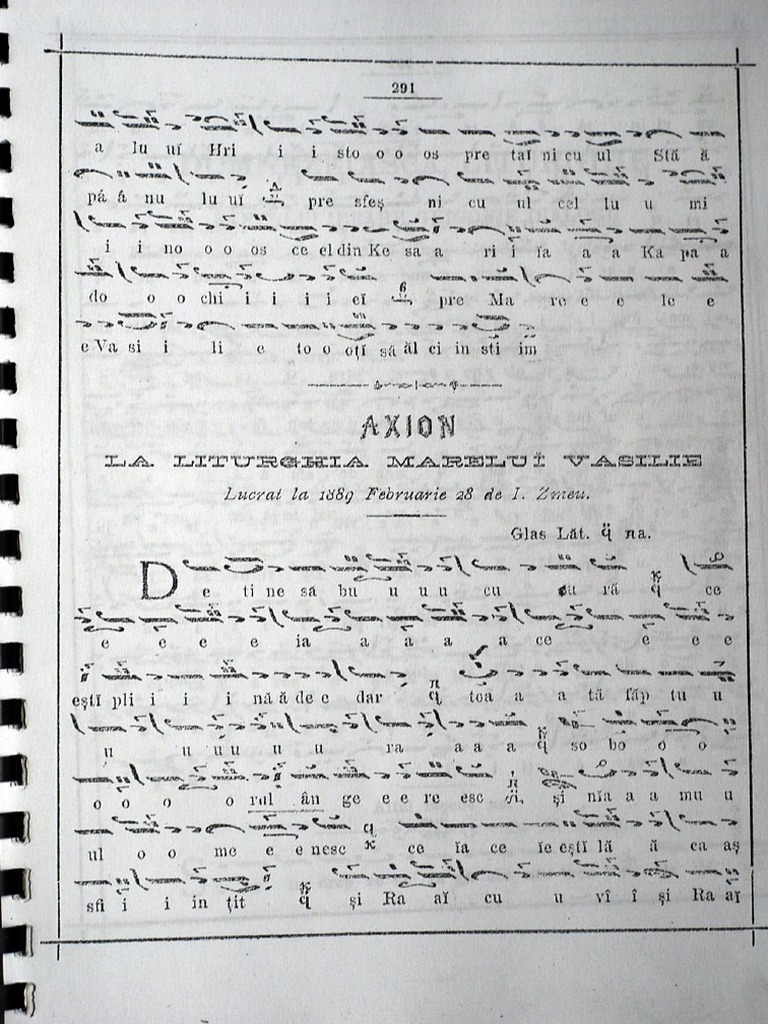 291
a lu uĭ Hri i i sto o o os pre taĭ ni cu ul Stă ă
pă ă nu lu uĭ pre sfeș ni cu ul cel lu u mi
i i no o o os ce el din Ke sa a ri i ĭa a a Ka pa a
do o o chi i i i i eĭ pre Ma re e e le e
e Va si i li e to o oțĭ să ăl ci in sti im
AXION
LA LITURGHIA MARELUĬ VASILIE
Lucrat la 1889 Februarie 28 de I. Zmeu.
Glas Lăt. q̈ πa.
De ti ne sa bu u u u cu ră ce
e e e e ia a a a a ce e e e
eștĭ pli i i i nă ă de e dar toa a a tă făp tu u
u u u u u u ra a a a so bo o o
o o o o rul ân ge e e re esc și nĭa a a mu u
ul o o me e e nesc ce ĭa ce ĭe eștĭ lă ă ca aș
sfi i i in țit și Ra aĭ cu u vî î și Ra aĭ